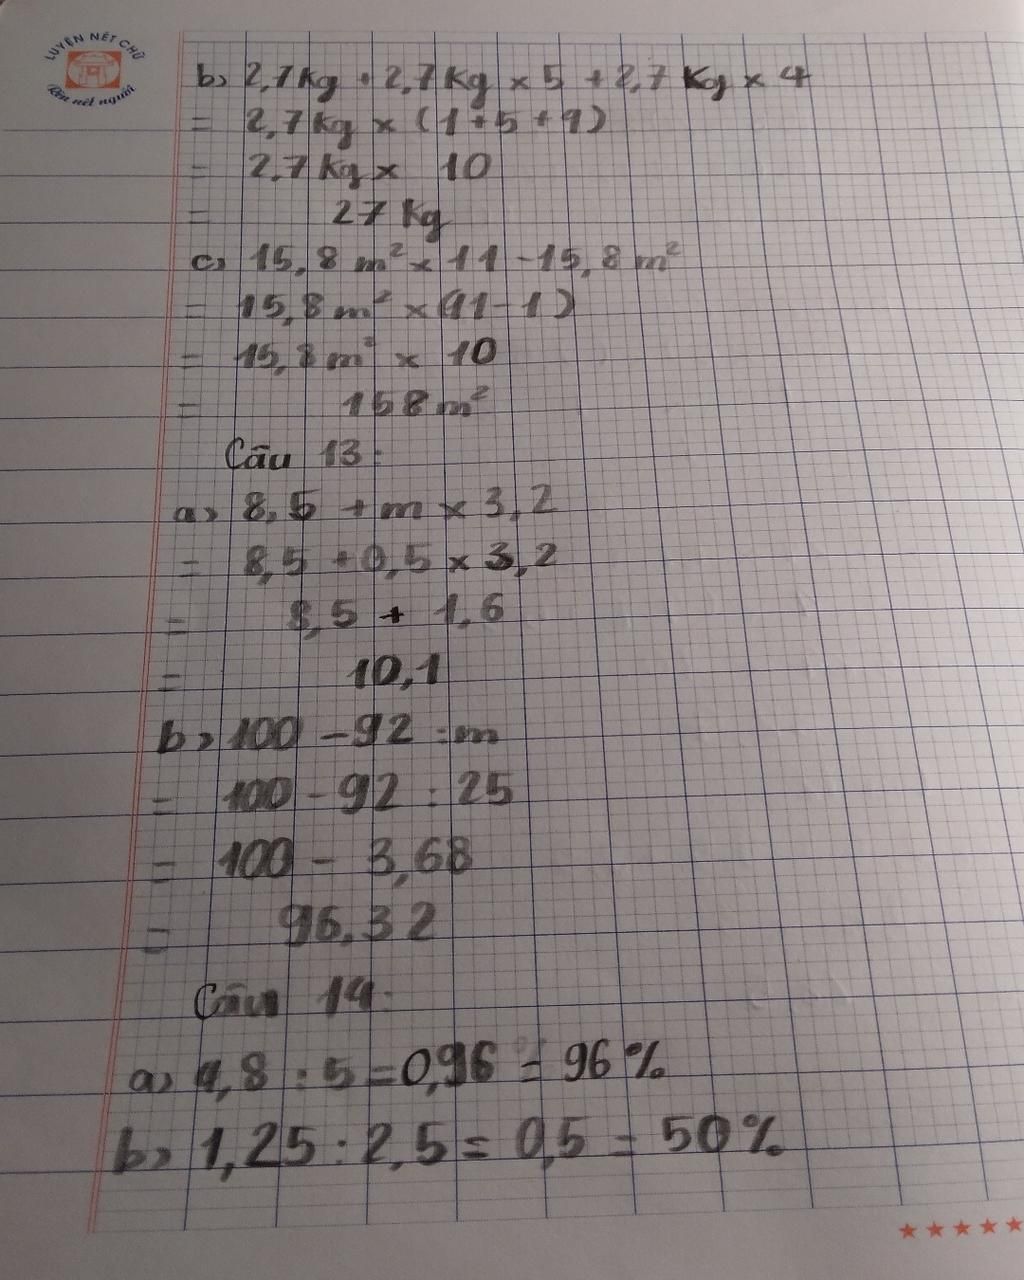 LUYỆN NÉT CHỮ
Rèn nết người
b) 2,7 Kg + 2,7 Kg x 5 + 2,7 Kg x 4
= 2,7 Kg x (1 + 5 + 4)
= 2,7 Kg x 10
= 27 Kg
c) 15,8 m² x 11 - 15,8 m²
= 15,8 m² x (11 - 1)
= 15,8 m² x 10
= 158 m²
Câu 13:
a) 8,5 + m x 3,2
= 8,5 + 0,5 x 3,2
= 8,5 + 1,6
= 10,1
b) 100 - 92 : m
= 100 - 92 : 25
= 100 - 3,68
= 96,32
Câu 14:
a) 4,8 : 5 = 0,96 = 96%
b) 1,25 : 2,5 = 0,5 = 50%